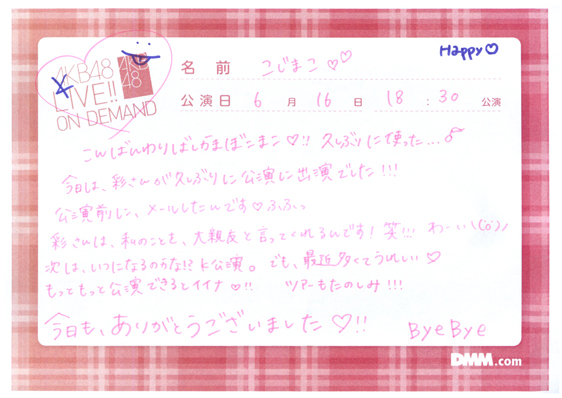 AKB48
LIVE!!
ON DEMAND
AKB
48
Happy♡
名 前 こじまこ♡♡
公演日 6 月 16 日 18 : 30 公演
こんばんわりばしかまぼこまこ♡!! 久しぶりに使った…♂
今日は、彩さんが久しぶりに公演に出演でした!!!
公演前に、メールしたんです♡ふふっ
彩さんは、私のことを、大親友と言ってくれるんです! 笑!!! わーい\(^o^)/
次は、いつになるのかな!? K公演。 でも、最近多くてうれしい♡
もっともっと公演できるとイイナ♡!! ツアーもたのしみ!!!
今日も、ありがとうございました♡!! ByeBye
DMM.com